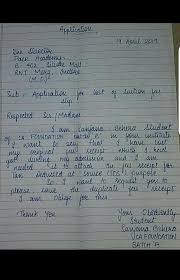 Application
19 April 2019
The Director
Pace Academy
B 402 Silicon Mall
RNT Marg, Indore
(M.P)
Sub - Application for lost of tution fee
slip
Respected Sir/Madam
I am Sanjana Behera Student
of CA FOUNDATION batch 'B' in your institute
I want to say that I have lost
my original fee receipt which I have
got during my admission and I am
needed it to attach the fee receipt for
tax deducted at source purpose.
So I want to request you to
please issue the duplicate fee receipt
I am Oblige for this
Thank You
Your Obediently
Student
Sanjana Behera
CA FOUNDATION
BATCH 'B'